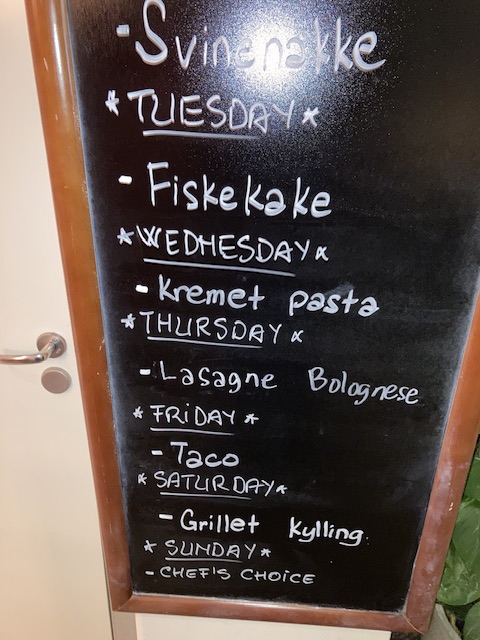 - Svinenakke
* TUESDAY *
- Fiskekake
* WEDNESDAY *
- Kremet pasta
* THURSDAY *
- Lasagne Bolognese
* FRIDAY *
- Taco
* SATURDAY *
- Grillet kylling
* SUNDAY *
- CHEF'S CHOICE